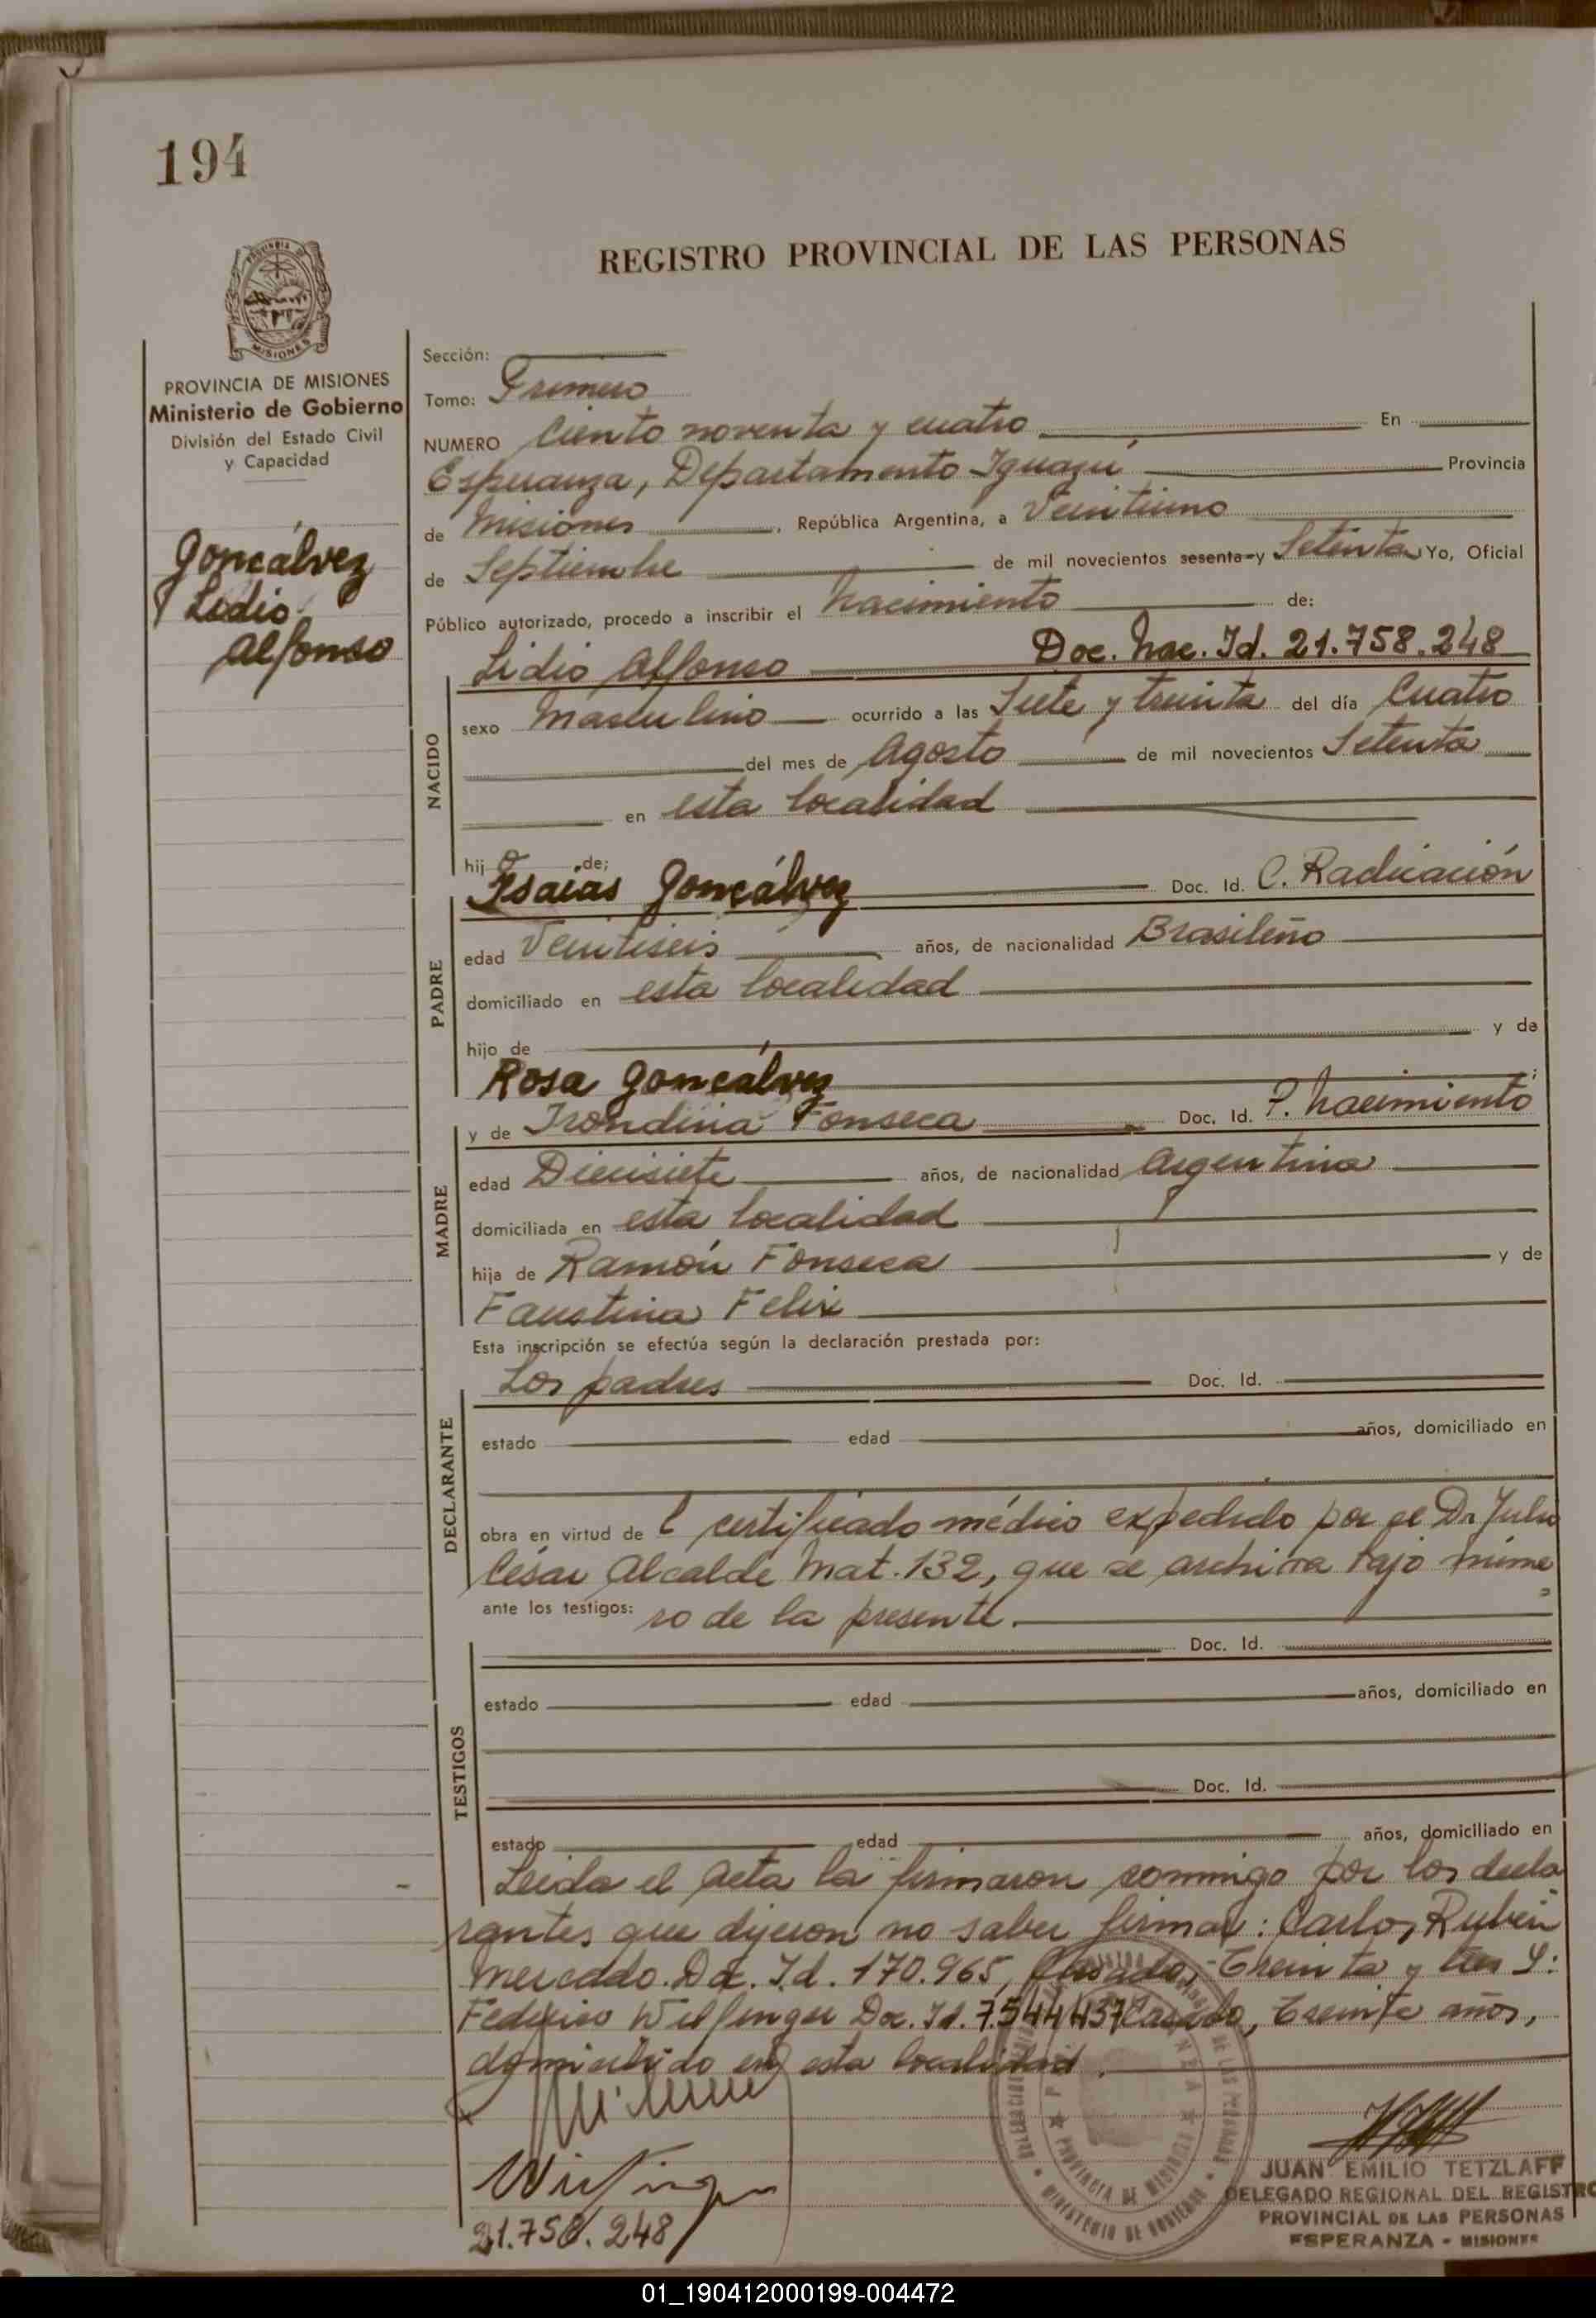 194
REGISTRO PROVINCIAL DE LAS PERSONAS
PROVINCIA DE MISIONES
Ministerio de Gobierno
División del Estado Civil
y Capacidad
Gonçálvez
Lidio
Alfonso
Sección:
Tomo: Primero
NUMERO Ciento noventa y cuatro En
Esperanza, Departamento Iguazú Provincia
de Misiones, República Argentina, a Veintiuno
de Septiembre de mil novecientos sesenta y Setenta Yo, Oficial
Público autorizado, procedo a inscribir el Nacimiento de:
Lidio Alfonso Doc. Nac. Id. 21.758.248
NACIDO
sexo Masculino ocurrido a las Siete y treinta del día Cuatro
del mes de Agosto de mil novecientos Setenta
en esta localidad
hijo de:
PADRE
Isaías Gonçálvez Doc. Id. C. Radicación
edad Veintiseis años, de nacionalidad Brasileño
domiciliado en esta localidad
hijo de y de
Rosa Gonçálvez
MADRE
y de Irondina Fonseca Doc. Id. P. Nacimiento
edad Diecisiete años, de nacionalidad Argentina
domiciliada en esta localidad
hija de Ramón Fonseca y de
Faustina Felix
Esta inscripción se efectúa según la declaración prestada por:
DECLARANTE
Los padres Doc. Id.
estado edad años, domiciliado en
obra en virtud de l certificado médico expedido por el Dr Julio
César Alcalde Mat. 132, que se archiva bajo núme
ante los testigos: ro de la presente.
TESTIGOS
Doc. Id.
estado edad años, domiciliado en
Doc. Id.
estado edad años, domiciliado en
Leida el acta la firmaron conmigo por los decla
rantes que dijeron no saber firmar: Carlos Rubén
Mercado. Doc. Id. 170.965, Casado, Treinta y tres Y:
Federico Wilfinger Doc. Id. 7.544.437 Casado, Treinta años,
domiciliado en esta localidad.
21.758.248
PROVINCIA DE MISIONES
MINISTERIO DE GOBIERNO
JUAN EMILIO TETZLAFF
DELEGADO REGIONAL DEL REGISTRO
PROVINCIAL DE LAS PERSONAS
ESPERANZA - MISIONES
01_190412000199-004472